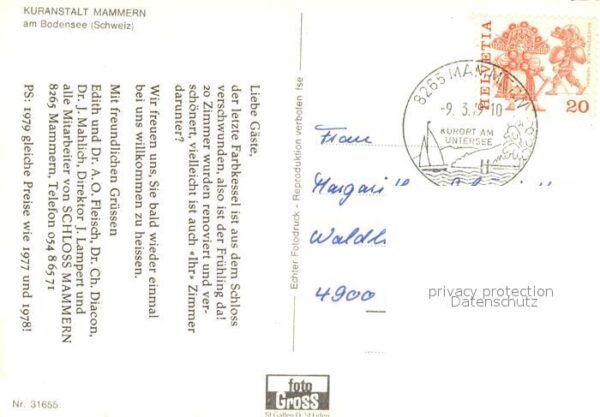 KURANSTALT MAMMERN
am Bodensee (Schweiz)
Liebe Gäste,
der letzte Farbkessel ist aus dem Schloss
verschwunden, also ist der Frühling da!
20 Zimmer wurden renoviert und ver-
schönert, vielleicht ist auch «Ihr» Zimmer
darunter?
Wir freuen uns, Sie bald wieder einmal
bei uns willkommen zu heissen.
Mit freundlichen Grüssen
Edith und Dr. A.O. Fleisch, Dr. Ch. Diacon,
Dr. J. Mahlich, Direktor J. Lampert und
alle Mitarbeiter von SCHLOSS MAMMERN
8265 Mammern, Telefon 054 8 65 71
PS: 1979 gleiche Preise wie 1977 und 1978!
Nr. 31655
Echter Fotodruck - Reproduktion verboten Ise
foto
GROSS
St Gallen
HELVETIA
20
8265 MAMMERN
-9. 3. 79-10
KURORT AM
UNTERSEE
Frau
Waldh
4900
privacy protection
Datenschutz